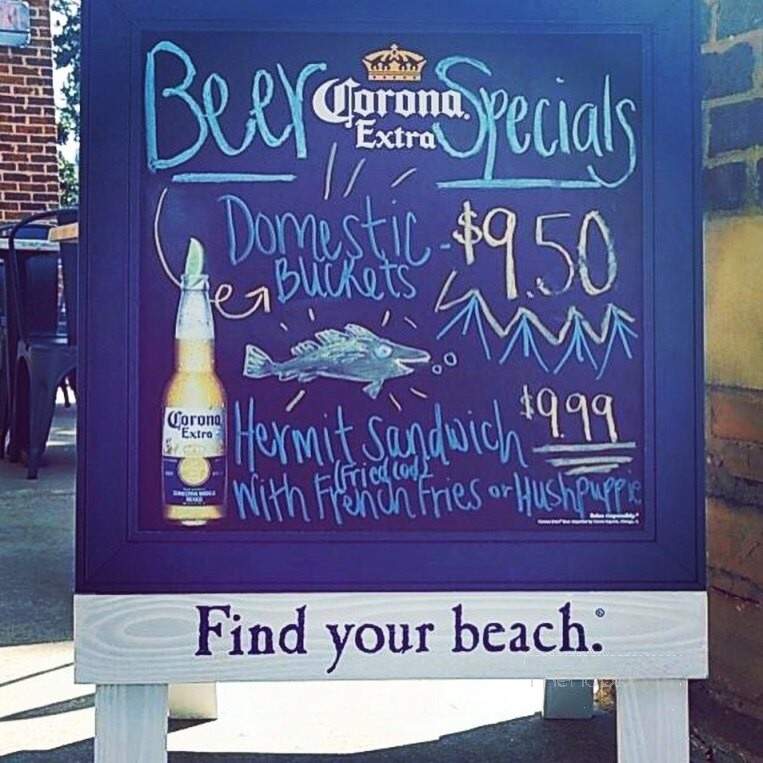 Beer Corona Extra Specials
Domestic - $9.50
Buckets
Hermit Sandwich $9.99
(Fried Cod)
With French Fries or Hushpuppie
Corona
Extra
Find your beach.®